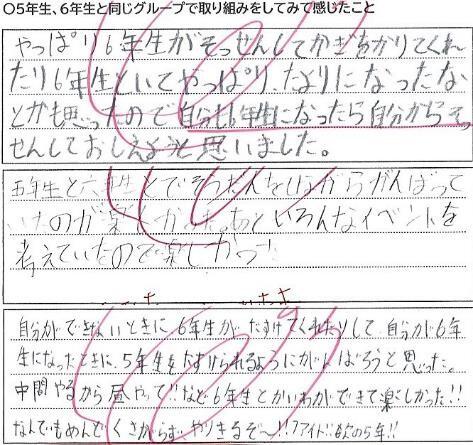 ○5年生、6年生と同じグループで取り組みをしてみて感じたこと
やっぱり6年生がそっせんしてかぎもかりてくれ
たり6年生といてやっぱり、たよりになったな
とかも思ったので自分も6年生になったら自分からそっ
せんしておしえようと思いました。
五年生と六年生とでそうだんをしながらがんばって
いけたのが楽しかった。あといろんなイベントを
考えていたので楽しかった！
自分ができないときに、6年生がたすけてくれたりして、自分が6年
生になったときに、5年生をたすけられるようにがんばろうと思った。
中間やるから昼やって!!など6年生とかいわができて楽しかった!!
なんでもめんどくさがらずやりきるぞ〜!!ファイト!!の5年!!